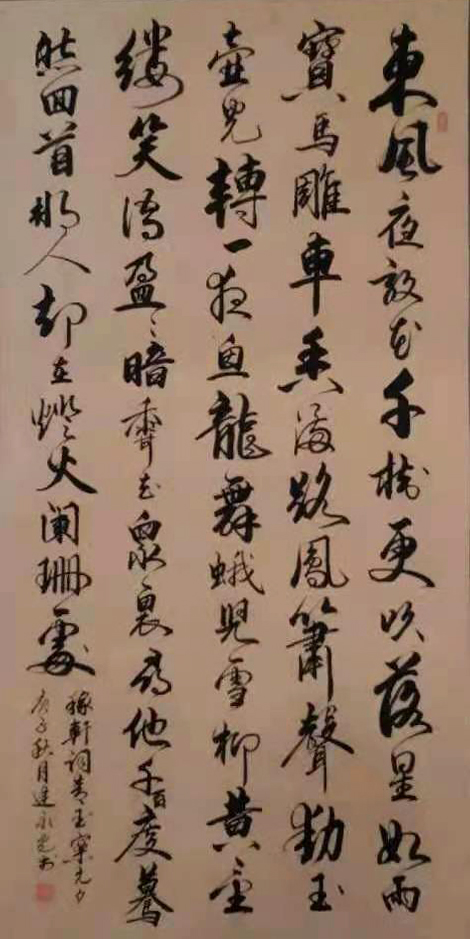 東風夜放花千樹更吹落星如雨
寶馬雕車香滿路鳳簫聲動玉
壺光轉一夜魚龍舞蛾兒雪柳黃金
縷笑語盈〻暗香去眾裏尋他千百度驀
然回首那人却在燈火闌珊處
稼軒詞青玉案元夕
庚子秋月